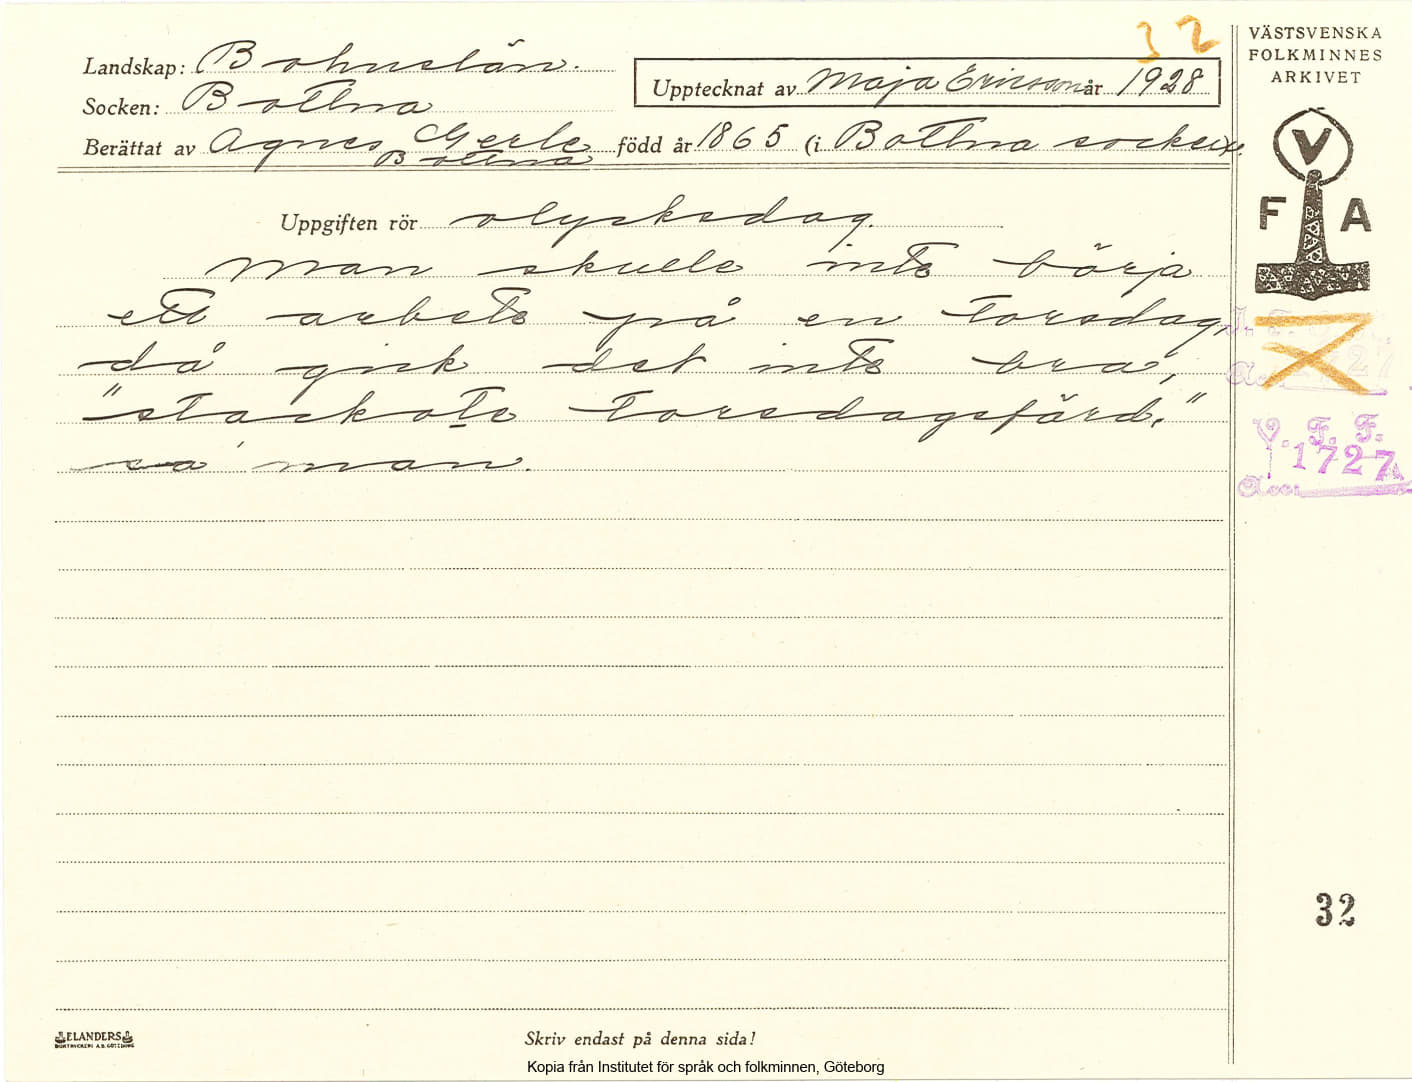 32
VÄSTSVENSKA
FOLKMINNES
ARKIVET
Landskap: Bohuslän.
Upptecknat av Maja Ericson år 1928
Socken: Bottna
Berättat av Agnes Gerle född år 1865 (i Bottna socken).
Bottna
V
F A
Uppgiften rör olycksdag.
Man skulle inte börja
ett arbete på en torsdag,
då gick det inte bra,
"stackote torsdagsfärd."
sa' man.
V. F. F.
1727
Acc:
32
ELANDERS
BOKTRYCKERI A.B. GÖTEBORG
Skriv endast på denna sida!
Kopia från Institutet för språk och folkminnen, Göteborg